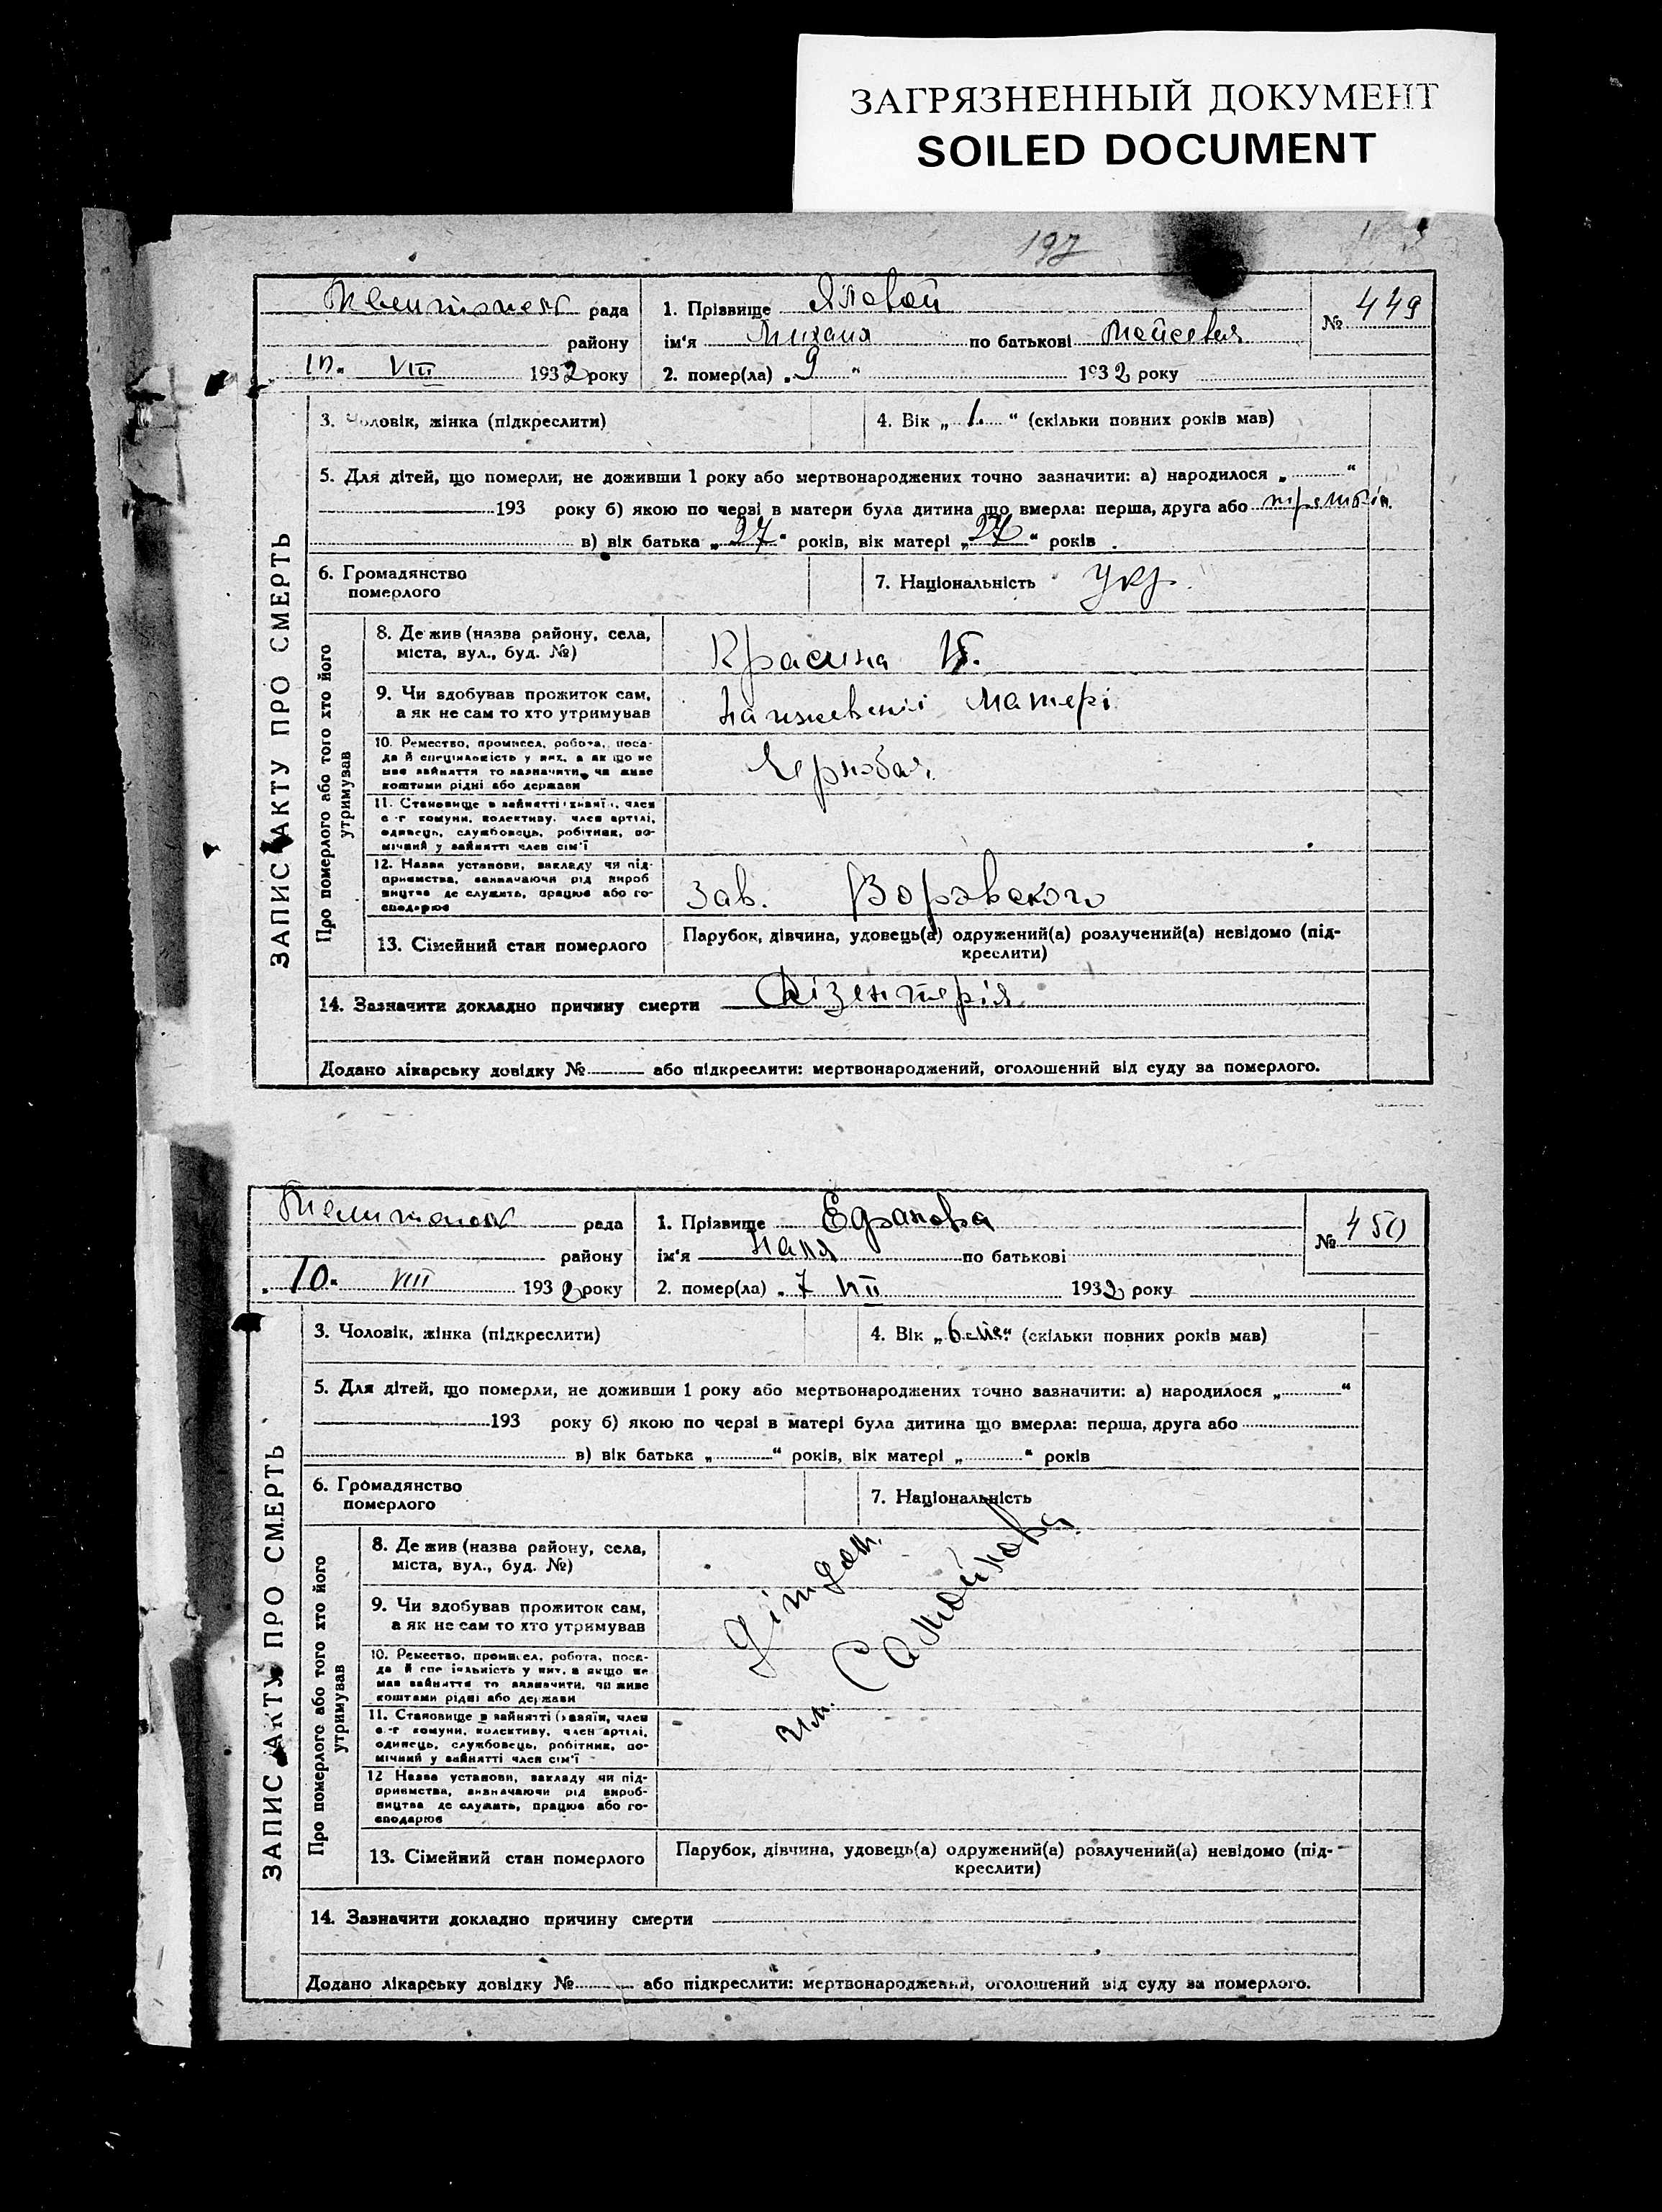 ЗАГРЯЗНЕННЫЙ ДОКУМЕНТ
SOILED DOCUMENT
197
рада
району
10 VIII 1932 року
1. Прізвище Яловой
ім'я Михаил по батькові
2. помер(ла) „ 9 “ 1932 року
№ 449
ЗАПИС АКТУ ПРО СМЕРТЬ
3. Чоловік, жінка (підкреслити)
4. Вік „ 1. “ (скільки повних років мав)
5. Для дітей, що померли, не доживши 1 року або мертвонароджених точно зазначити: а) народилося „ “
193 року б) якою по черзі в матери була дитина що вмерла: перша, друга або
в) вік батька „ 27 “ років, вік матері „ 27 “ років
6. Громадянство померлого
7. Національність Укр.
Про померлого або того хто його утримував
8. Де жив (назва району, села, міста, вул., буд. №)
Красина
9. Чи здобував прожиток сам, а як не сам то хто утримував
матері
10. Ремество, промисел, робота, поса-
да й спеціальність у них, а як що не
мав зайняття то зазначити, чи живе
коштами рідні або держави
11. Становище в зайнятті (хазяїн, член
с.-г комуни, колективу, член артілі,
одинець, службовець, робітник, по-
мічний у зайнятті член сім'ї
12. Назва установи, закладу чи під-
приємства, зазначаючи рід вироб
ництва де служить, працює або го-
сподарює
Зав. Воровского
13. Сімейний стан померлого
Парубок, дівчина, удовець(а) одружений(а) розлучений(а) невідомо (під-
креслити)
14. Зазначити докладно причину смерти Дізентерія
Додано лікарську довідку № або підкреслити: мертвонароджений, оголошений від суду за померлого.
рада
району
„ 10 “ VIII 1932 року
1. Прізвище
ім'я по батькові
2. помер(ла) „ 7 VII 1932 року
№ 450
ЗАПИС АКТУ ПРО СМЕРТЬ
3. Чоловік, жінка (підкреслити)
4. Вік „ 6 міс “ (скільки повних років мав)
5. Для дітей, що померли, не доживши 1 року або мертвонароджених точно зазначити: а) народилося „ “
193 року б) якою по черзі в матері була дитина що вмерла: перша, друга або
в) вік батька „ “ років, вік матері „ “ років
6. Громадянство померлого
7. Національність
Про померлого або того хто його утримував
8. Де жив (назва району, села,
міста, вул., буд. №)
9. Чи здобував прожиток сам,
а як не сам то хто утримував
10. Ремество, промисел, робота, поса-
да й спеціальність у них, а якщо не
мав зайняття то зазначити, чи живе
коштами рідні або держави
11. Становище в зайнятті (хазяїн, член
с.-г комуни, колективу, член артілі,
одинець, службовець, робітник, по-
мічний у зайнятті член сім'ї
12 Назва установи, закладу чи під-
приємства, зазначаючи рід вироб-
ництва де служить, працює або го-
сподарює
Дітдом.
им. Самойлова
13. Сімейний стан померлого
Парубок, дівчина, удовець(а) одружений(а) розлучений(а) невідомо (під-
креслити)
14. Зазначити докладно причину смерти
Додано лікарську довідку № або підкреслити: мертвонароджений, оголошений від суду за померлого.